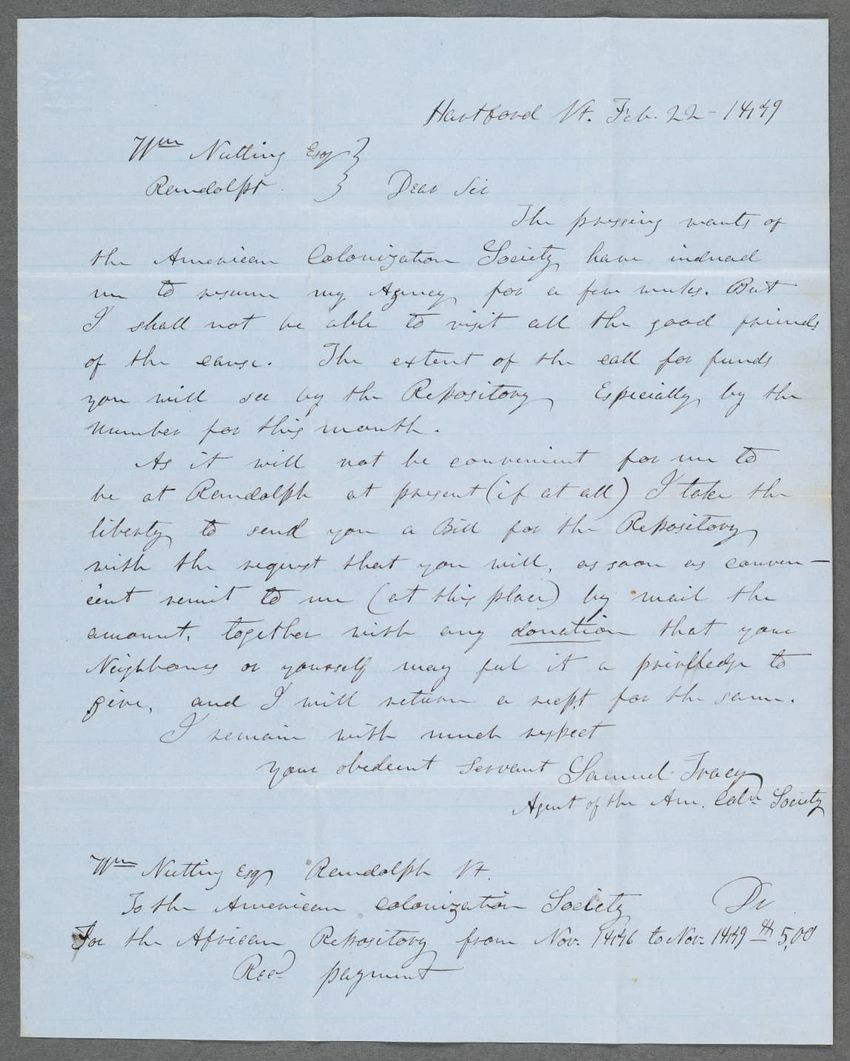 Hartford Vt. Feb. 22 - 1849
Wm Nutting Esq }
Randolph. } Dear Sir
The pressing wants of
the American Colonization Society have induced
me to resume my Agency for a few weeks. But
I shall not be able to visit all the good friends
of the cause. The extent of the call for funds
you will see by the Repository Especially by the
Number for this month.
As it will not be convenient for me to
be at Randolph at present (if at all) I take the
liberty to send you a Bill for the Repository
with the request that you will, as soon as conven-
ient remit to me (at this place) by mail the
amount, together with any donation that your
Neighbours or yourself may ful it a priviledge to
give, and I will return a recept for the same.
I remain with much respect
Your obedient Servant Samuel Tracy
Agent of the Am. Coln Society
Wm Nutting Esq Randolph Vt.
To the American Colonization Society Dr
For the African Repository from Nov. 1846 to Nov. 1849 5,00
Recd payment